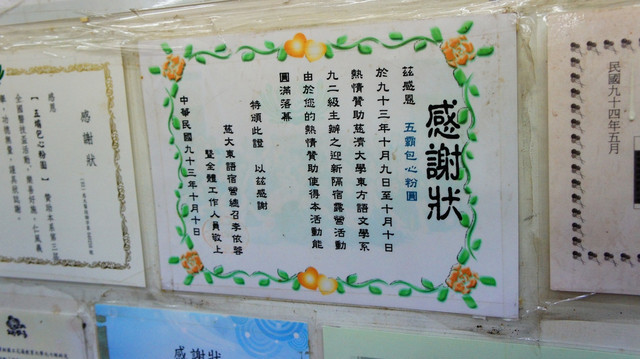 感謝狀
茲感恩 五霸包心粉圓
於九十三年十月九日至十月十日
熱情贊助慈濟大學東方語文學系
九二級主辦之迎新隔宿露營活動
由於您的熱情贊助使得本活動能
圓滿落幕
特頒此證 以茲感謝
慈大東語宿營總召李依蓉
暨全體工作人員敬上
中華民國九十三年十月十日
感謝狀
感恩
民國九十四年五月
感謝狀